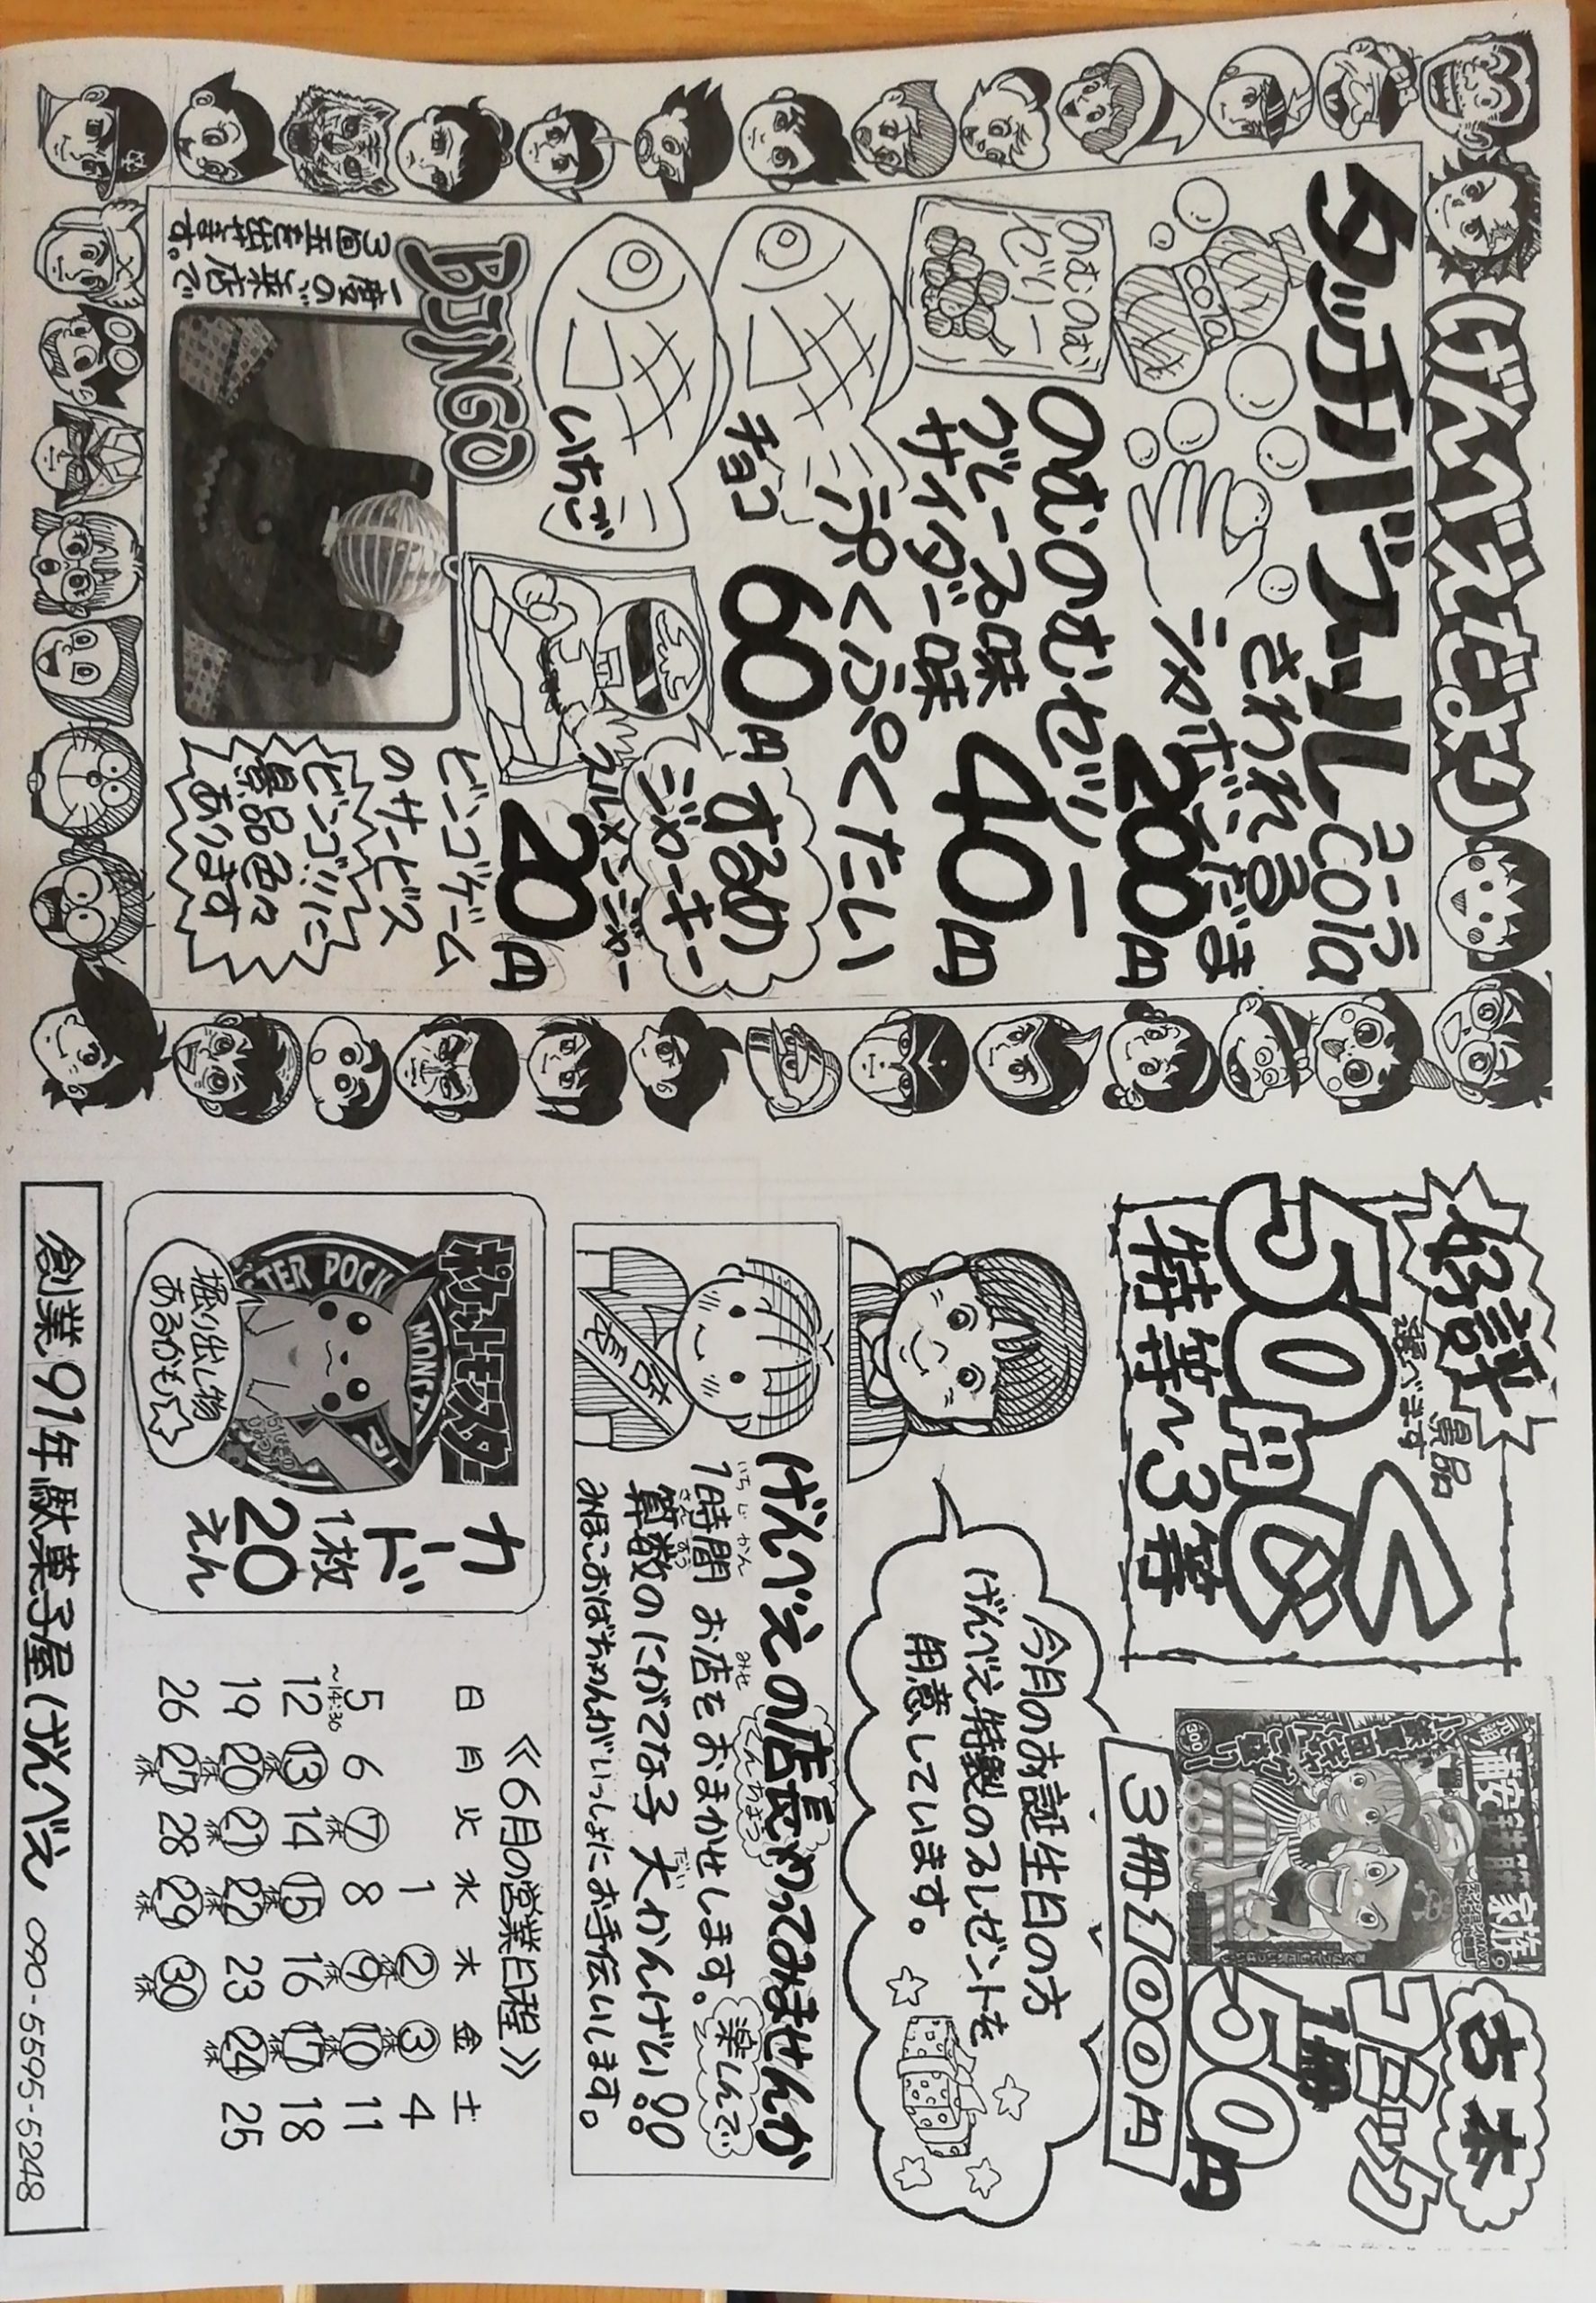 げんべえだより
タッチバブルcola
コーラ
さわれる
シャボンだま
200円
cola
のむのむゼリー
のむのむ
ぜりー
グレープ味
サイダー味
40円
ミニぷくぷくたい
チョコ
いちご
60円
するめ
ジャーキー
スルメンジャー
20円
BINGO
一度のご来店で
3個玉を出せます。
ビンゴゲーム
のサービス
ビンゴ!!に
景品色々
あります
好評
景品
選べます
50円くじ
特等～3等
古本
コミック
1冊
50円
3冊100円
浦安鉄筋家族
今月のお誕生日の方
げんべえ特製のプレゼントを
用意しています。
げんべえの店長やってみませんか
てんちょう
いちじかん
みせ
1時間 お店をおまかせします。楽しんで
さんすう
だい
算数のにがてな子 大かんげい!!
みほこおばちゃんがいっしょにお手伝いします。
店長
ポケットモンスター
掘り出し物
あるかも☆
カード
1枚
20
えん
《6月の営業日程》
日 月 火 水 木 金 土
1 ② ③ 4
5 6 ⑦ 8 ⑨ ⑩ 11
～14:30
12 ⑬ 14 ⑮ 16 ⑰ 18
19 ⑳ ㉑ ㉒ 23 ㉔ 25
26 ㉗ 28 ㉙ ㉚
創業91年駄菓子屋げんべえ 090-5595-5248